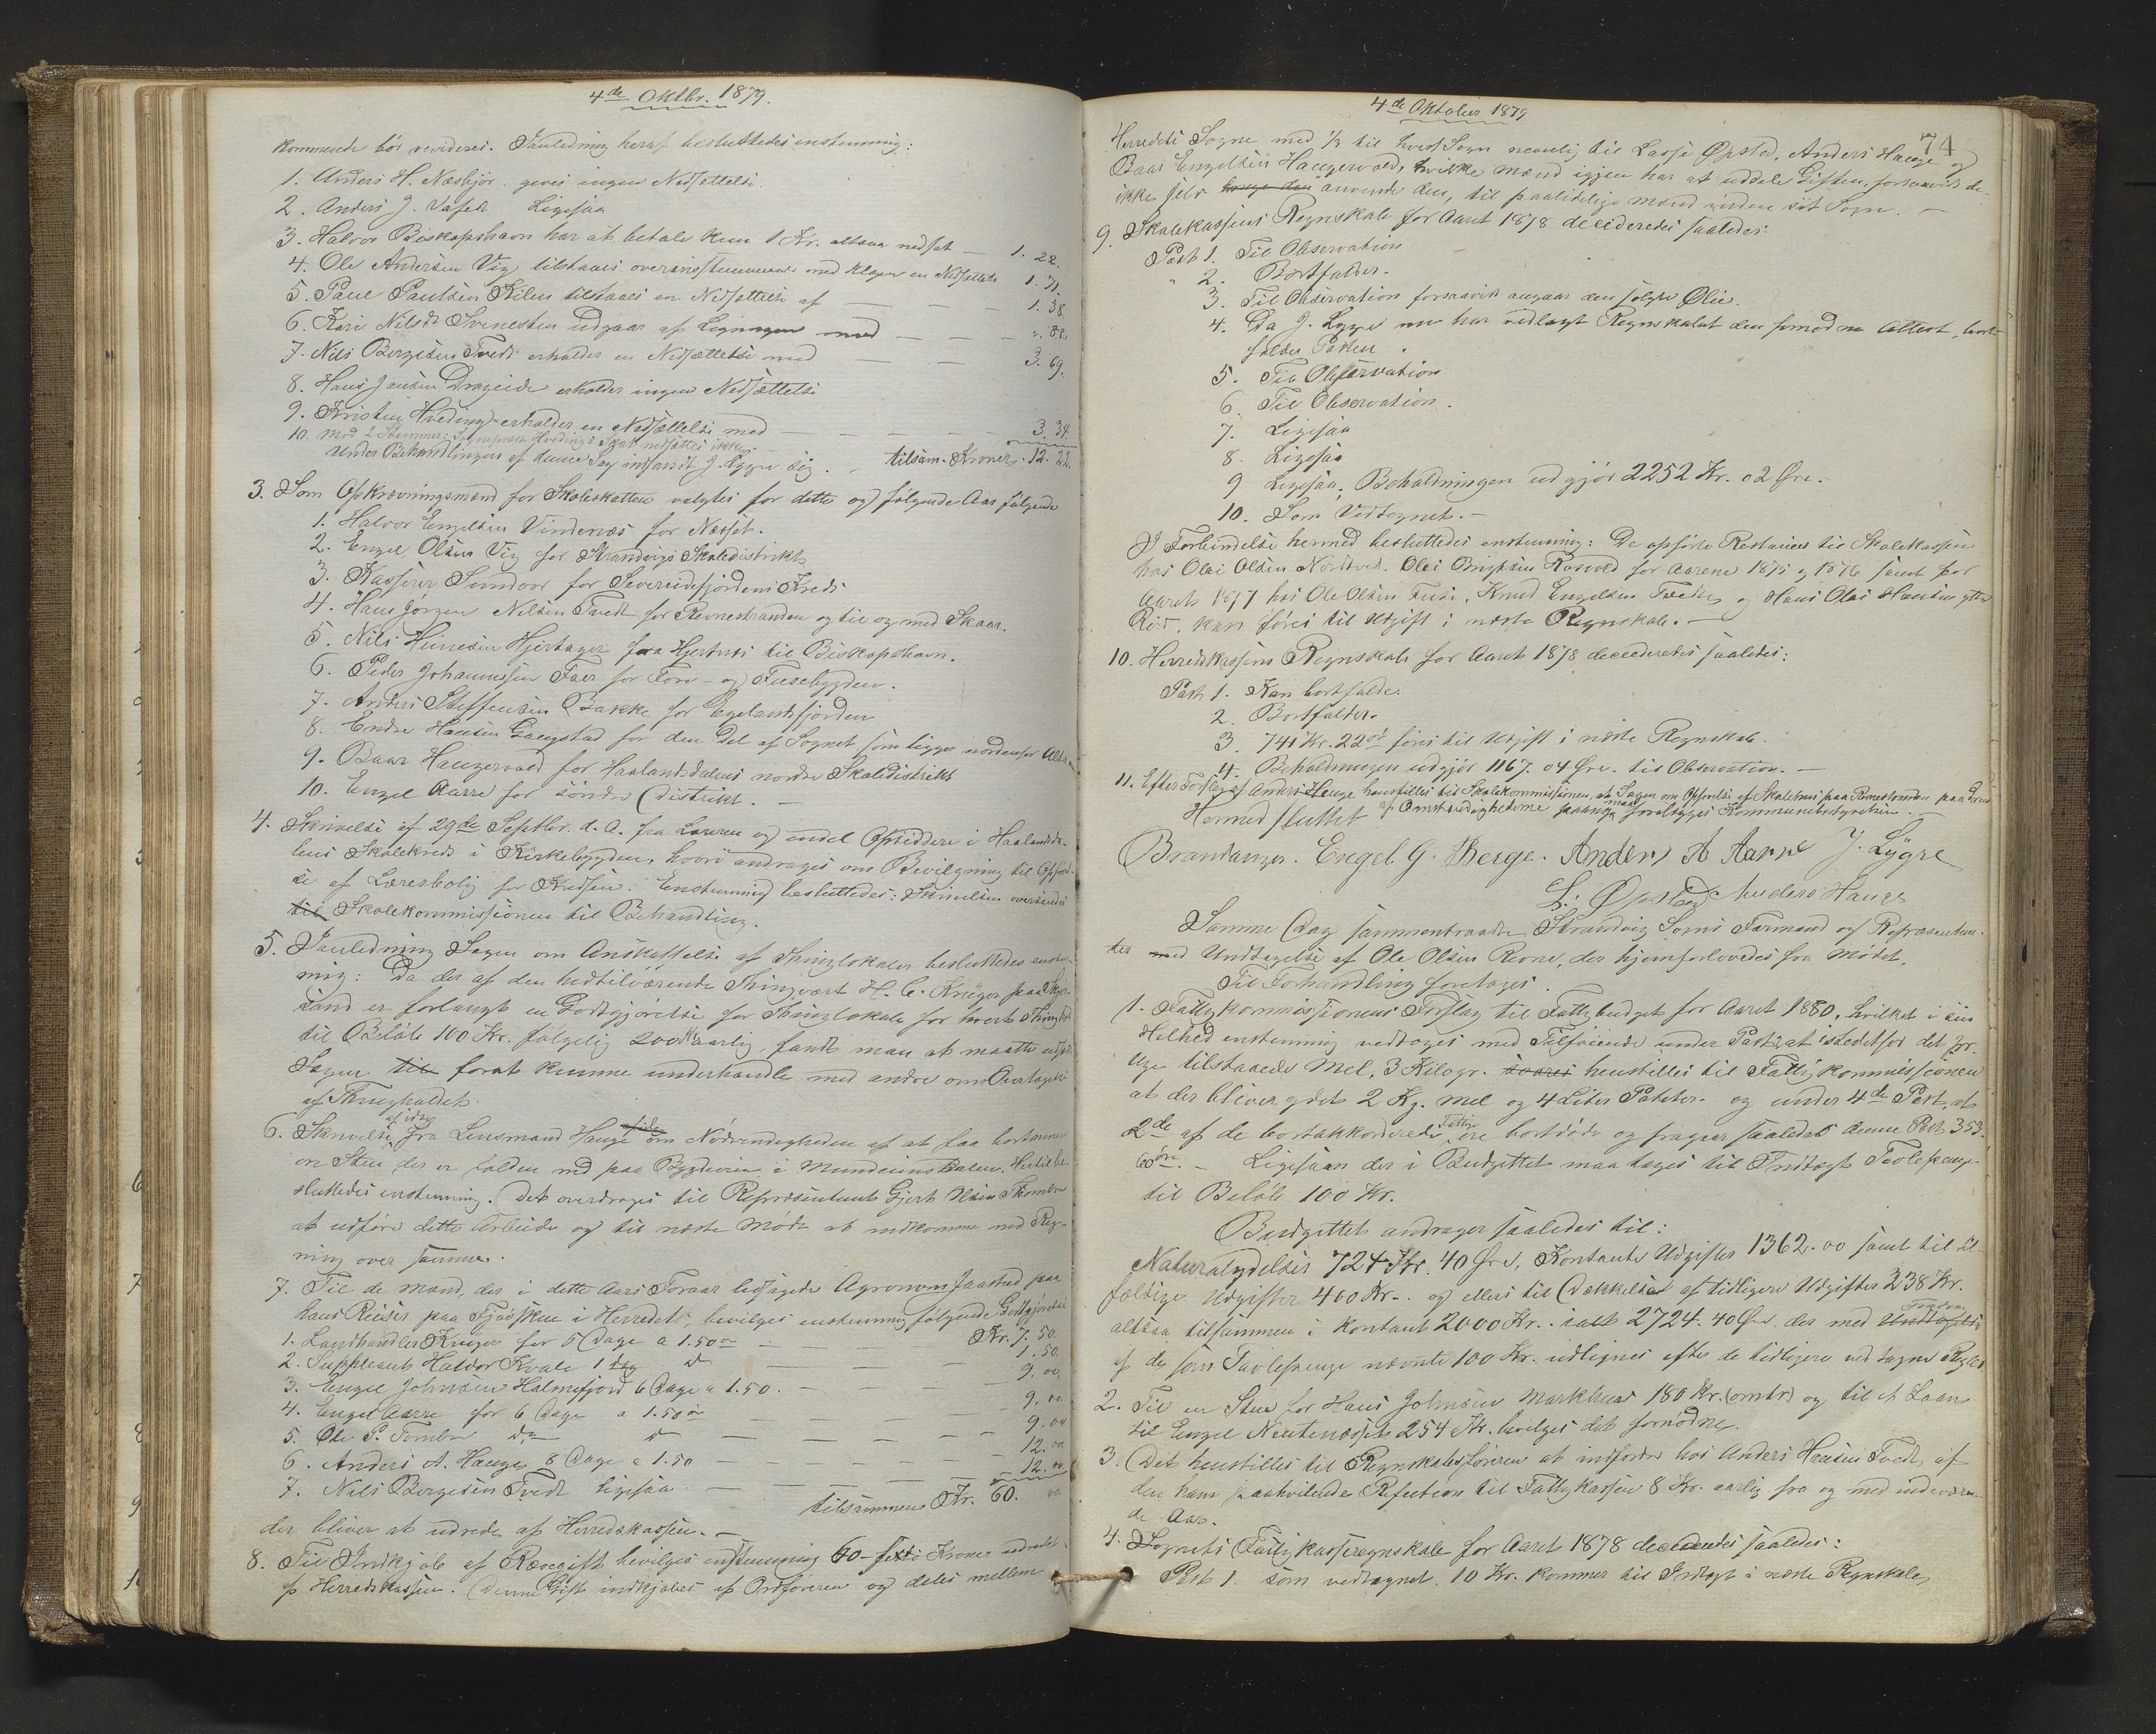 4de Oktbr. 1879.
kommende bör revideres. I anledning heraf besluttedes enstemmig:
1. Anders H. Næsbjör gives ingen Nedsættelse.
2. Anders J. Ligesaa
3. Halvor Biskopshavn har at betale kun 1 Kr. altsaa nedsat — 1. 22.
4. Ole Andersen Vig tilstaaes overensstemmende med Klagen en Nedsættelse 1. 31.
5. Paul Paulsen Kilen tilstaaes en Nedsættelse af — — 1. 38
6. Kari Nilsdt Svenesten udgaar af Ligningen med — — — ". 88.
7. Nils Børgesen Tvedt erholder en Nedsættelse med — — 3. 69.
8. Hans Jansen Drageide erholder ingen Nedsættelse
9. Kristen Hveding erholder en Nedsættelse med — — — — 3. 34.
10. Mod 2 Stemmer: Hvedings Skat nedsættes ikke.
Under Behandlingen af denne Sag indfandt J. Lygre sig. tilsam. Kroner. 12. 22.
3. Som Opkrævningsmænd for Skoleskatten valgtes for dette og følgende Aar følgende
1. Halvor Engelsen Vindenes for Næsset.
2. Engel Olsen Vig for Strandvigs Skoledistrikt
3. Kasserer Sundvor for Sævereidefjordens Kreds
4. Hans Jörgen Nilsen Tvedt for Revnestranden og til og med Skaar.
5. Nils Heinesen Hjertager fra Hjertnes til Biskopshavn.
6. Peder Johannessen Faer for Fore- og Fusebygden.
7. Anders Steffensen Bakke for Egelandsfjorden
8. Endre Hansen Gangstad for den Del af Sognet som ligger nordenfor
9. Baar Haugervold for Haalandsdalens nordre Skoledistrikt
10. Engel Aarre for söndre Distrikt. —
4. Skrivelse af 29de Septbr. d. A. fra Læreren og endel Opsiddere i Haalandsda-
lens Skolekreds i Kirkebygden, hvori andrages om Bevilgning til Opførel-
se af Lærerbolig for Kredsen. Enstemmig besluttedes: Skrivelsen oversendes
til Skolekommissionen til Behandling.
5. I anledning Sagen om Anskaffelse af Thinglokaler besluttedes enstem-
mig: Da der af den hidtilværende Thingvært H. C. Krüger paa
sund er forlangt en Godtgjørelse for Thinglokale for hvert Thing
til Beløb 100 Kr. følgelig 200 Kr aarlig, fandt man at maatte udsætte
Sagen til forat kunne underhandle med andre om Overtagelse
af Thingholdet.
6. Skrivelse af idag fra Lensmand Hauge om Nødvendigheden af at faa borttaget
en Sten der er falden ned paa Bygdeveien i Mundeimsdalen. Hertil be-
sluttedes enstemmig. Det overdrages til Repræsentant Gjert Olsen Thombre
at udføre dette Arbeide og til næste Møde at indkomme med Reg-
ning over samme.
7. Til de Mænd, der i dette Aars Foraar ledsagede Agronom Jaastad paa
hans Reiser paa i Herredet, bevilges enstemmig følgende Godtgjørelse
1. Landhandler Krüger for 5 Dage a 1.50 — Kr. 7. 50.
2. Suppleant Haldor Kvale 1 Dag — 1. 50.
3. Engel Johnsen Holmefjord 6 Dage a 1.50. — 9. 00.
4. Engel Aarre for 6 Dage a 1.50 — 9. 00.
5. Ole P. Tombre do — 9. 00
6. Anders A. Hauge 8 Dage a 1.50 — 12. 00
7. Nils Børgesen Tvedt ligesaa — 12. 00
tilsammen Kr. 60. 00
der bliver at udrede af Herredskassen. —
8. Til Indkjøb af Rævegift bevilges enstemmig 60 - sexti Kroner udredet
af Herredskassen. Denne Gift indkjøbes af Ordføreren og deles mellem
74
4de Oktober 1879
Herredets Sogne med 1/3 til hvert Sogn nemlig til Lasse Øpstad, Anders Hauge og
Baar Engelsen Haugervold, hvilke Mænd igjen har at uddele Giften, forsaavidt de
ikke selv bruge den anvende den, til paalidelige Mænd inden sit Sogn. —
9. Skolekassens Regnskab for Aaret 1878 decideredes saaledes:
Post 1. Til Observation
" 2. Bortfalder.
3. Til Observation forsaavidt angaar den solgte Olie.
4. Da J. Lygre nu har vedlagt Regnskabet den fornødne Attest, bort-
falder Posten.
5. Til Observation
6. Til Observation.
7. Ligesaa
8. Ligesaa
9 Ligesaa; Beholdningen udgjör 2252 Kr. 02 Øre.
10. Som Vedtegnet. —
I Forbindelse hermed besluttedes enstemmig: De opførte Restancer til Skolekassen
hos Olai Olsen Nordtved. Olai Brigtsen Rosvold for Aarene 1875 og 1876 samt for
Aaret 1877 hos Ole Olsen Fuse, Knud Engelsen Tvedt og Hans Olai Hansen ytre
Röd, kan føres til Udgift i næste Regnskab. —
10. Herredskassens Regnskab for Aaret 1878 decideredes saaledes:
Post 1. Kan bortfalde.
2. Bortfalder.
3. 741 Kr. 22 øre føres til Udgift i næste Regnskab.
4. Beholdningen udgjør 1167. 04 Øre. til Observation. —
11. Efter Forslag af Anders Hauge henstilles til Skolekommissionen, at Sagen om Opførelse af Skolehus paa Revnestranden paa Grund
af Omstændighederne forelægges Kommunebestyrelsen. —
Hermed sluttet
Brandanger. Engel. G. Berge. Anders A Aarre J. Lygre
L. Øpstad Anders Hauge
Samme Dag sammentraadte Strandvig Sogns Formænd og Repræsentan-
ter med Undtagelse af Ole Olsen Revne, der hjemforlovedes fra Mødet.
Til Forhandling foretoges.
1. Fattigkommissionens Forslag til Fattigbudget for Aaret 1880, hvilket i sin
Helhed enstemmig vedtoges med Tilføiende under Post 2, at istedetfor det pr.
Uge tilstaaede Mel, 3 Kilogr. henstilles til Fattigkommissionen
at der bliver ydet 2 Kg. Mel og 4 Liter Poteter. og under 4de Post, at
2de af de bortakkorderede Fattige ere bortdøde og fragaar saaledes denne Post 353.
60 øre. — Ligesaa der i Budgettet maa tages til Indtægt Tvolepenge
til Beløb 100 Kr.
Budgettet andrager saaledes til:
Naturalydelser 724 Kr. 40 Øre, Kontante Udgifter 1362. 00 samt til til-
fældige Udgifter 400 Kr. og ellers til Dækkelse af tidligere Udgifter 238 Kr.
altsaa tilsammen i Kontant 2000 Kr. ialt 2724. 40 Øre, der med Undtagelse Fradrag
af de som Tvolepenge nævnte 100 Kr. udlignes efter de tidligere vedtagne Regler
2. Til en Stue for Hans Johnsen Markhus 180 Kr. (omtr) og til et Laan
til Engel Nertenæsset 254 Kr. bevilges det fornødne.
3. Det henstilles til Regnskabsføreren at indfordre hos Anders Hansen Tvedt af
den ham paahvilende Refusion til Fattigkassen 8 Kr. aarlig fra og med indeværen-
de Aar.
4. Sognets Fattigkasseregnskab for Aaret 1878 decideredes saaledes:
Post 1. som vedtegnet. 10 Kr. kommer til Indtægt i næste Regnskab